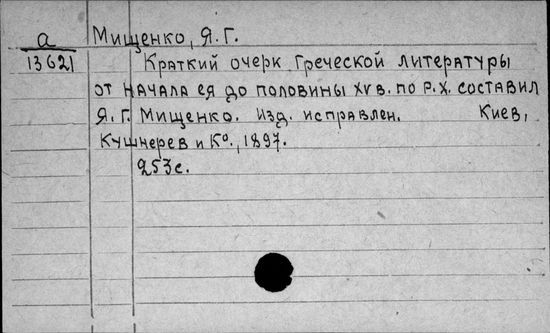 а
13621
Мищенко, Я. Г.
Краткий очерк Греческой литературы
от начала ея до половины XV в. по Р. Х. составил
Я. Г. Мищенко. Изд. исправлен. Киев,
Кушнерев и К⁰., 1897.
253 с.